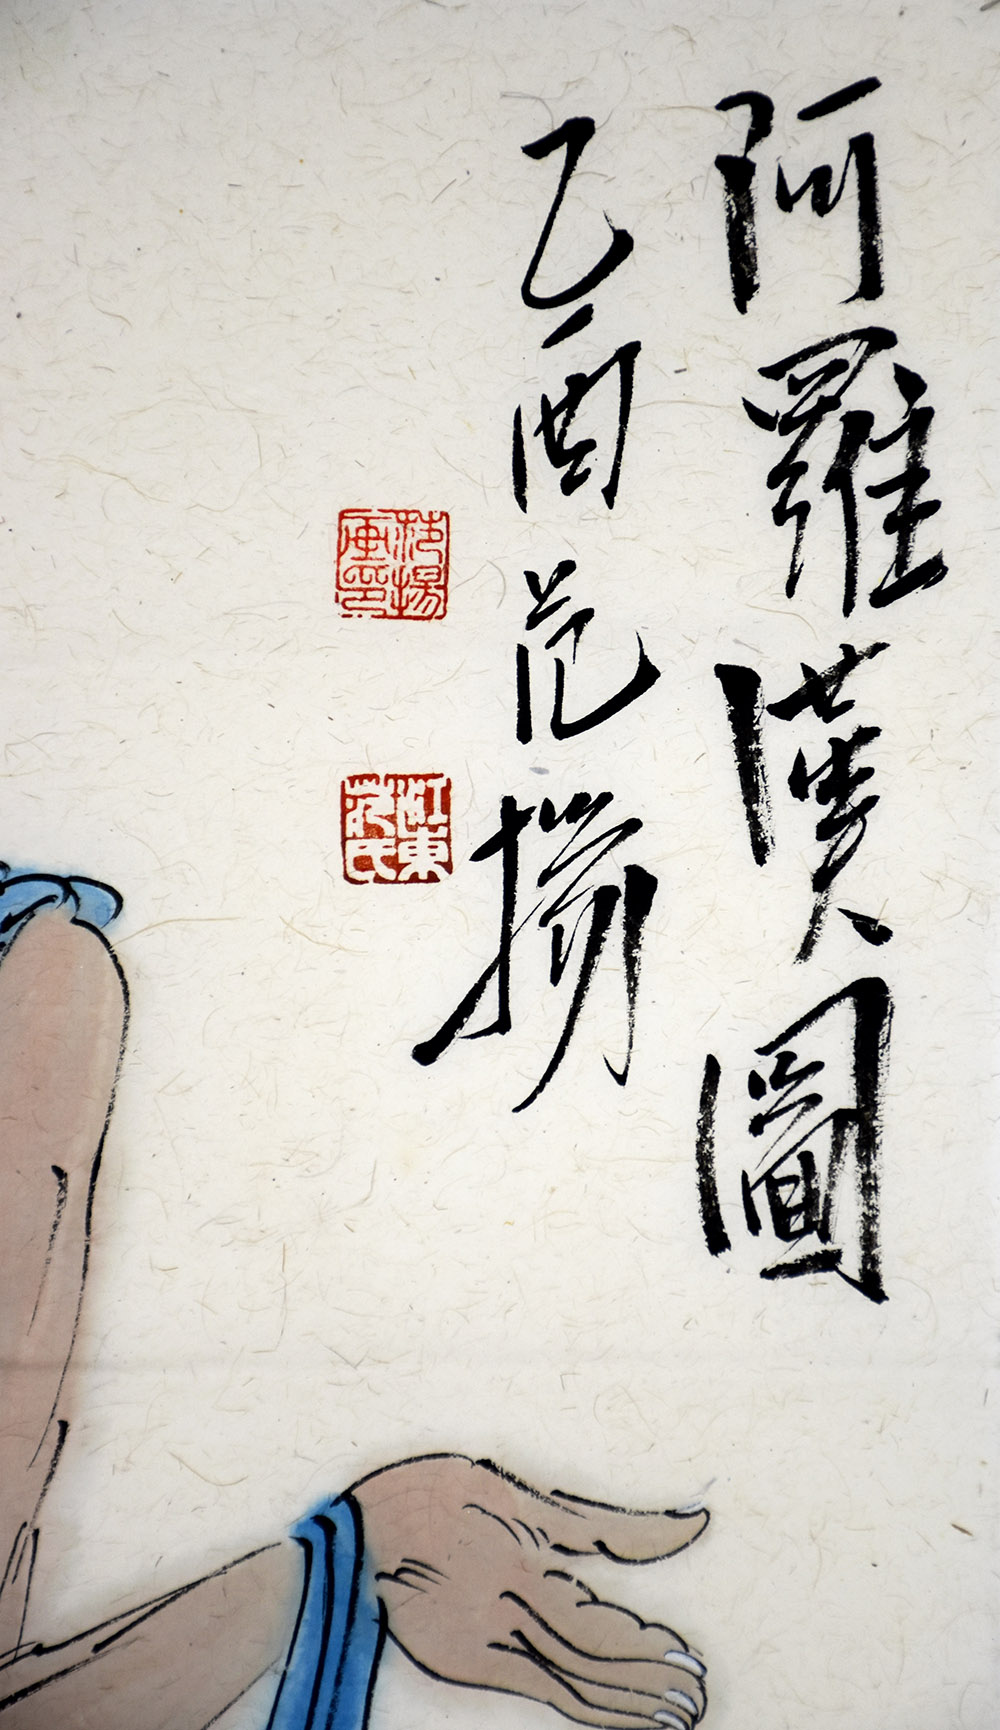 阿羅漢圖
乙酉范揚
范揚畫印
江東范氏